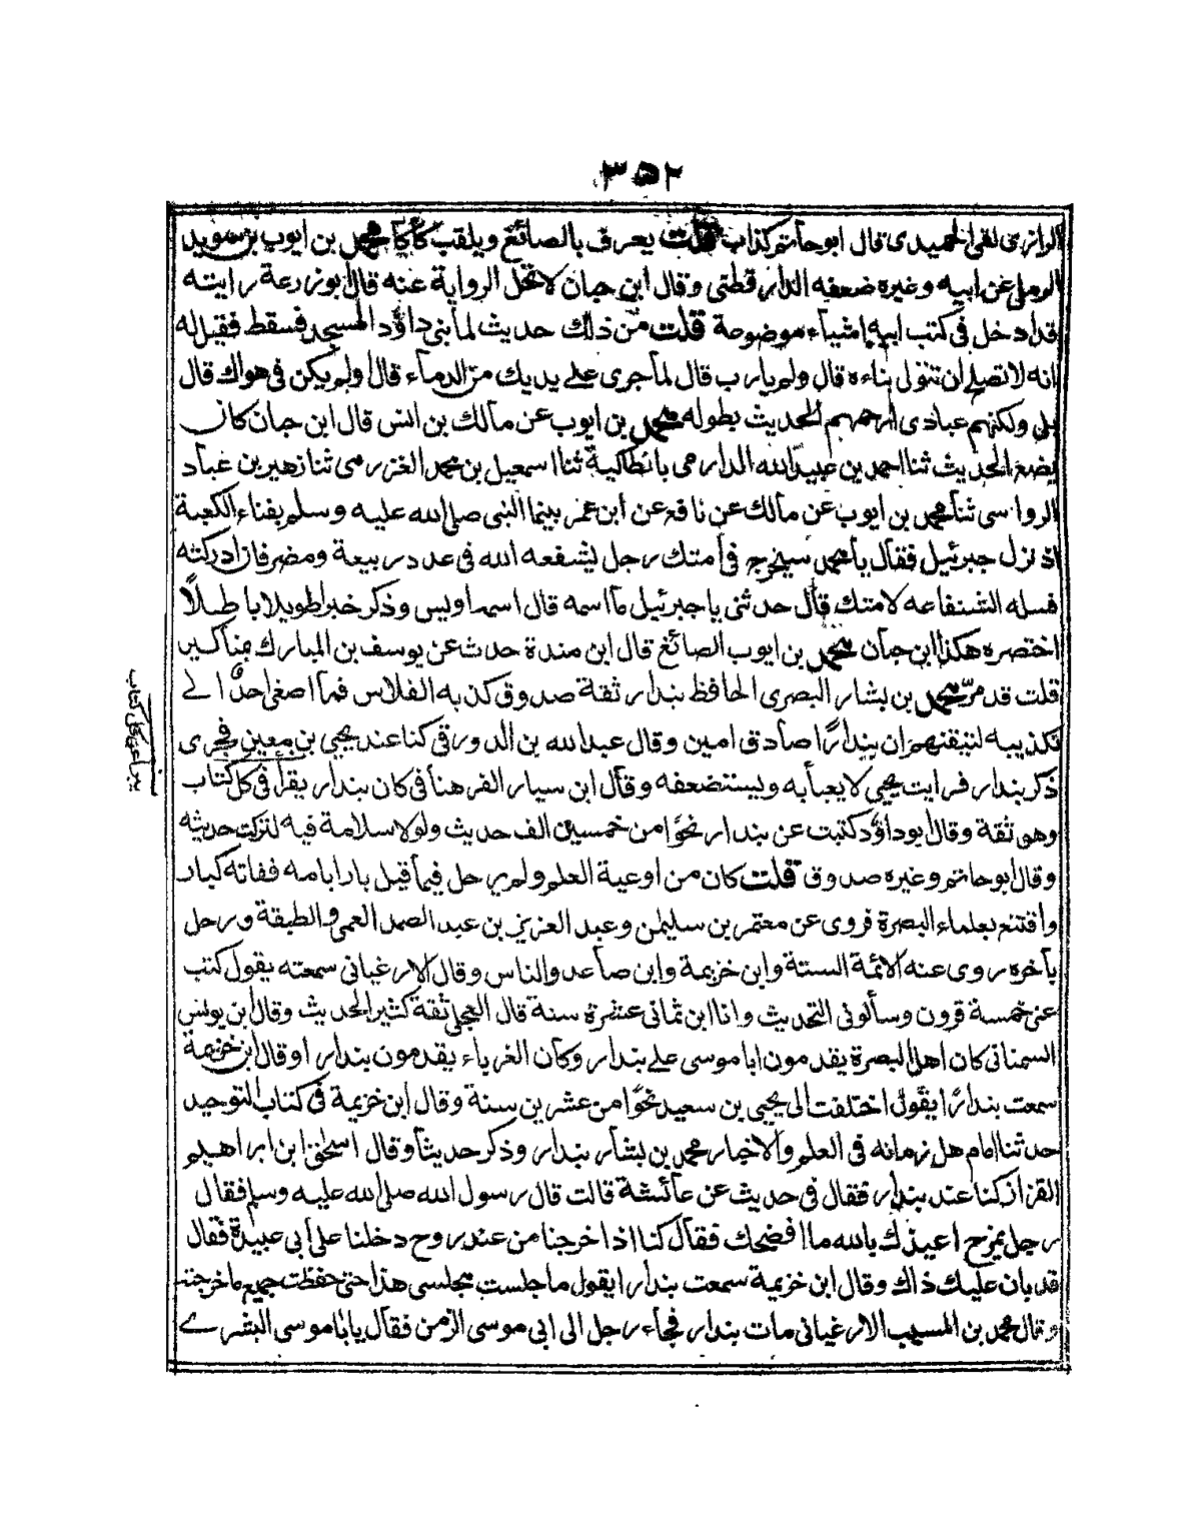 ۳۵۲
الرازى لقى الحميدى قال ابوحاتم كذاب قلت يعرف بالصائغ ويلقب كاكا محمد بن ايوب بن سويد
الرملى عن ابيه وغيره ضعفه الدارقطنى وقال ابن حبان لا تحل الرواية عنه قال ابو زرعة رايته
قد ادخل فى كتب ابيه اشياء موضوعة قلت من ذلك حديث لما بنى داؤد المسجد فسقط فقيل له
انه لا تصلح ان تتولى بناءه قال ولم يا رب قال لما جرى على يديك من الدماء قال ولم يكن فى هواك قال
بلى ولكنهم عبادى ارحمهم الحديث بطوله محمد بن ايوب عن مالك بن انس قال ابن حبان كان
يضع الحديث ثنا احمد بن عبيد الله الدارمى بانطاكية ثنا اسمعيل بن محمد الغزرمى ثنا زهير بن عباد
الرواسى ثنا محمد بن ايوب عن مالك عن نافع عن ابن عمر بينما النبى صلى الله عليه وسلم بفناء الكعبة
اذ نزل جبرئيل فقال يا محمد سيخرج فى امتك رجل ليشفعه الله فى عدد ربيعة ومضر فان ادركته
فسله الشفاعه لامتك قال حدثنى يا جبرئيل ما اسمه قال اسمه اويس وذكر خبرا طويلا باطلاً
اختصره هكذا ابن حبان محمد بن ايوب الصائغ قال ابن مندة حدث عن يوسف بن المبارك مناكير
قلت قد مرّ محمد بن بشار البصرى الحافظ بندار ثقة صدوق كذبه الفلاس فما اصغى احدٌ الى
تكذيبه لتيقنهم ان بندارًا صادق امين وقال عبد الله بن الدورقى كنا عند يحيى بن معين فجرى
ذكر بندار فرايت يحيى لا يعبأ به ويستضعفه وقال ابن سيار الفرهنا فى كان بندار يقرأ فى كل كتاب
وهو ثقة وقال ابو داؤد كتبت عن بندار نحوًا من خمسين الف حديث ولولا سلامة فيه لتركت حديثه
وقال ابوحاتم وغيره صدوق قلت كان من اوعية العلم ولم يرحل فيما قيل بارا بامه ففاته كبار
واقتنع بعلماء البصرة فروى عن معتمر بن سليمن وعبد العزيز بن عبد الصمد العمى والطبقة ورحل
باخره روى عنه الائمة الستة وابن خزيمة وابن صاعد والناس وقال الارغيانى سمعته يقول كتب
عنى خمسة قرون وسألونى التحديث وانا ابن ثمانى عشرة سنة قال العجلى ثقة كثير الحديث وقال ابن يونس
السمنانى كان اهل البصرة يقدمون ابا موسى على بندار وكان الغرباء يقدمون بندار اوقال ابن خزيمة
سمعت بندارًا يقول اختلفت الى يحيى بن سعيد نحوًا من عشرين سنة وقال ابن خزيمة فى كتاب التوحيد
حدثنا امام هل زمانه فى العلم والاخبار محمد بن بشار بندار وذكر حديثا وقال اسحق ابن ابراهيم
القزاز كنا عند بندار فقال فى حديث عن عائشة قالت قال رسول الله صلى الله عليه وسلم فقال
رجل يمزح اعيذك بالله ما افضحك فقال كنا اذا خرجنا من عند روح دخلنا على ابى عبيدة فقال
قد بان عليك ذاك وقال ابن خزيمة سمعت بندارا يقول ما جلست مجلسى هذا حتى حفظت جميع ما خرجته
وقال محمد بن المسيب الارغيانى مات بندار فجاء رجل الى ابى موسى الزمن فقال يا ابا موسى البشرى